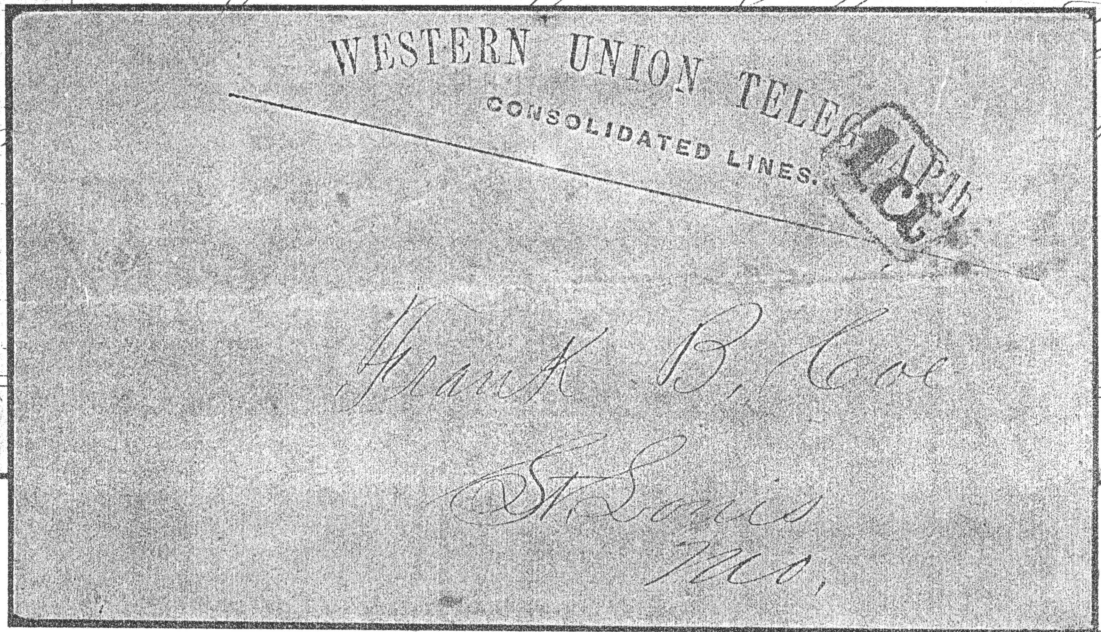 WESTERN UNION TELEGRAPH
CONSOLIDATED LINES.
1 ct
Frank B. Coe
St. Louis
Mo.